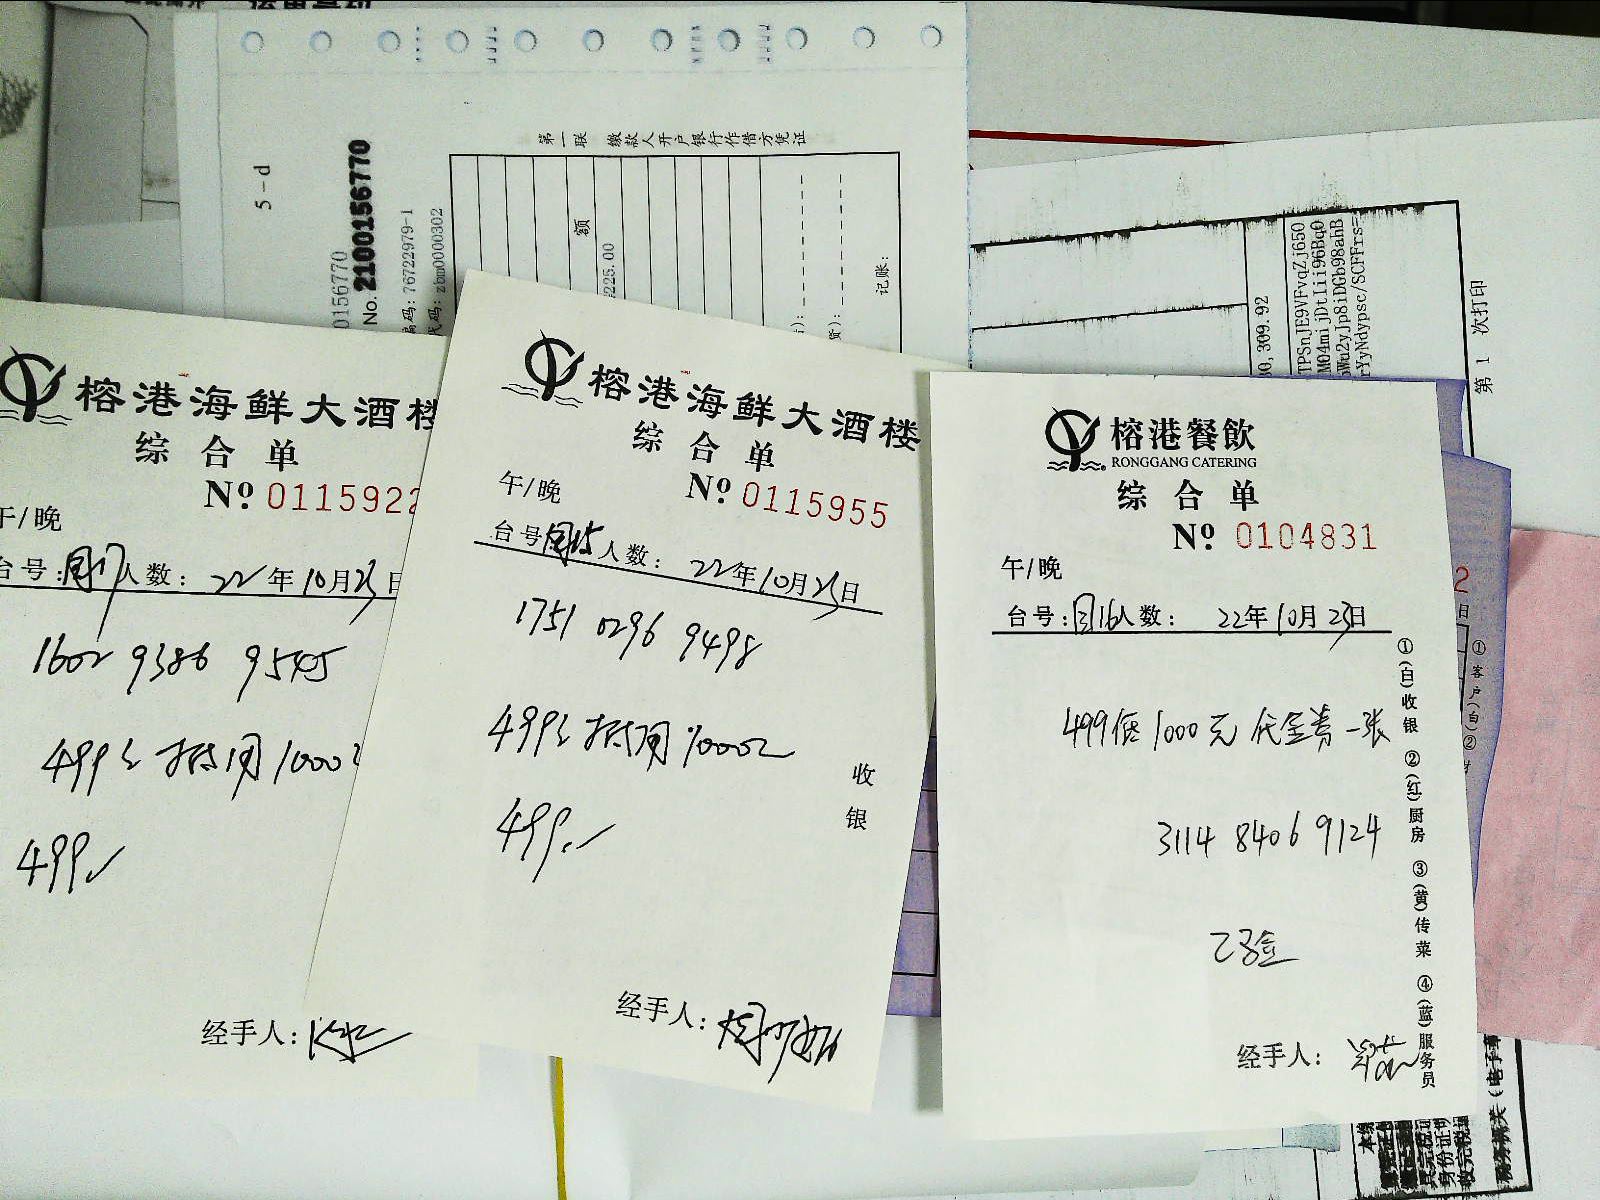 5-d
0156770
No. 2100156770
编码: 76722979-1
代码: zbm0000302
第一联 缴款人开户银行作借方凭证
额
225.00
记账:
30,309.92
TPSnJE9VFvqZj650
M04mnijDtIii96Bq0
nWu2yJp8iDGb98ahB
rYyNdypsc/SCFFrs=
第 1 次打印
榕港海鲜大酒楼
综合单
Nº 0115922
午/晚
台号: 人数: 22年10月23日
1602 9386 9545
499元抵用1000元
499
经手人:
榕港海鲜大酒楼
综合单
Nº 0115955
午/晚
台号 人数: 22年10月23日
1751 0296 9498
499元抵用1000元
499
收银
经手人:
榕港餐飲
RONGGANG CATERING
综合单
Nº 0104831
午/晚
台号: 16人数: 22年10月23日
499抵1000元代金券一张
3114 8406 9124
已验
经手人:
①(白)收银 ②(红)厨房 ③(黄)传菜 ④(蓝)服务员
2
日
①客户(白)②